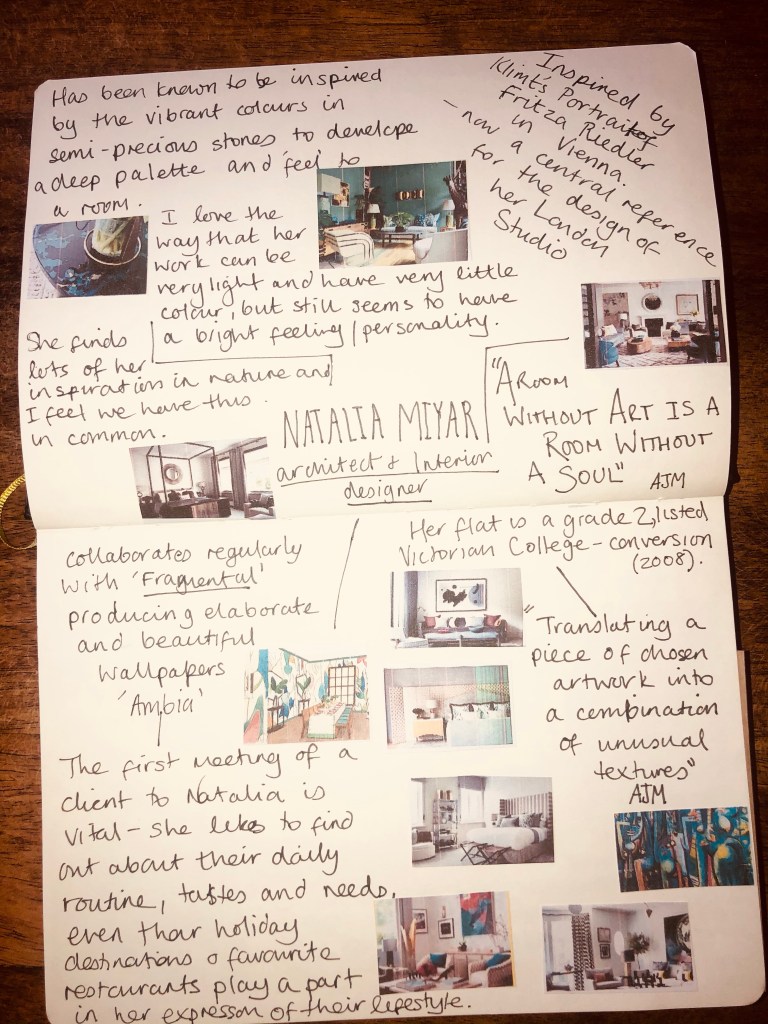 Has been known to be inspired
by the vibrant colours in
semi-precious stones to develope
a deep palette and 'feel' to
a room.
Inspired by
Klimt's Portrait of
Fritza Riedler
in Vienna.
- now a central reference
for the design of
her London
Studio
I love the
way that her
work can be
very light and have very little
colour, but still seems to have
a bright feeling/personality.
She finds
lots of her
inspiration in nature and
I feel we have this
in common.
NATALIA MIYAR
architect + Interior
designer
"A ROOM
WITHOUT ART IS A
ROOM WITHOUT
A SOUL"
AJM
collaborates regularly
with 'Fragmental'
producing elaborate
and beautiful
wallpapers
'Ambia'
Her flat is a grade 2, listed
Victorian College - conversion
(2008).
"Translating a
piece of chosen
artwork into
a combination
of unusual
textures"
AJM
The first meeting of a
client to Natalia is
vital - she likes to find
out about their daily
routine, tastes and needs,
even thair holiday
destinations o favourite
restaurants play a part
in her expresson of their lifestyle.